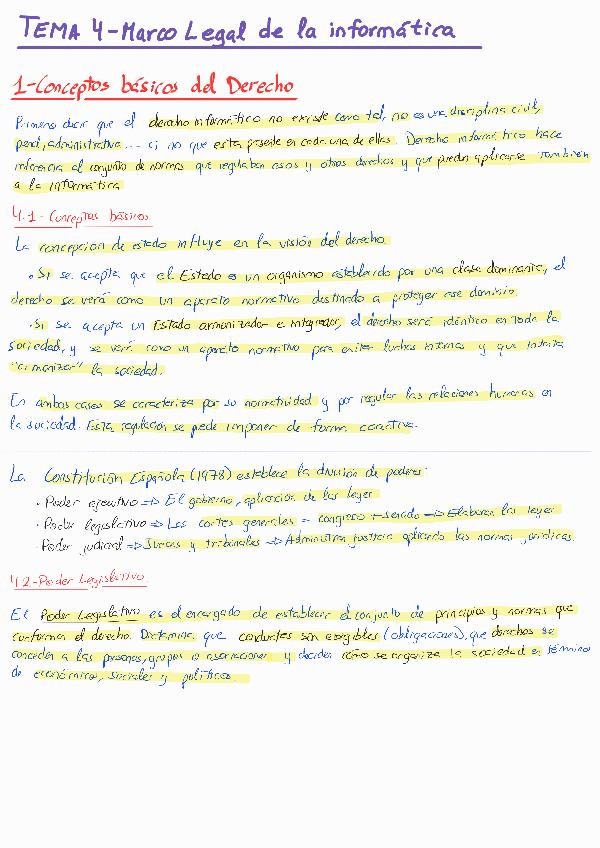 TEMA 4-Marco Legal de la informática
1-Conceptos básicos del Derecho
Primero decir que el derecho informático no existe como tal, no es una disciplina civil,
penal, administrativa... si no que esta presente en cada una de ellas. Derecho informático hace
referencia al conjunto de normas que regulaban esos y otros derechos y que pueden aplicarse también
a la informática
4.1- Conceptos básicos
La concepcion de estado influye en la visión del derecho.
• Si se acepta que el Estado es un organismo establecido por una clase dominante, el
derecho se verá como un aparato normativo destinado a proteger ese dominio.
• Si se acepta un Estado armonizador e integrador, el derecho será idéntico en toda la
sociedad, y se verá como un aparato normativo para evitar luchas internas y que intenta
"armonizar" la sociedad.
En ambos casos se caracteriza por su normatividad y por regular las relaciones humanas en
la sociedad. Esta regulación se puede imponer de forma coactiva.
La Constitución Española (1978) establece la división de poderes:
· Poder ejecutivo => El gobierno, aplicación de las leyes
· Poder legislativo => Las cortes generales = congreso + senado => Elaboran las leyes
· Poder judicial => Jueces y tribunales => Administran justicia aplicando las normas jurídicas.
4.2-Poder Legislativo
El Poder Legislativo es el encargado de establecer el conjunto de principios y normas que
conforman el derecho. Determina que conductas son exigibles (obligaciones), que derechos se
conceden a las personas, grupos o asociaciones y deciden cómo se organiza la sociedad en términos
de económicos, sociales y políticos